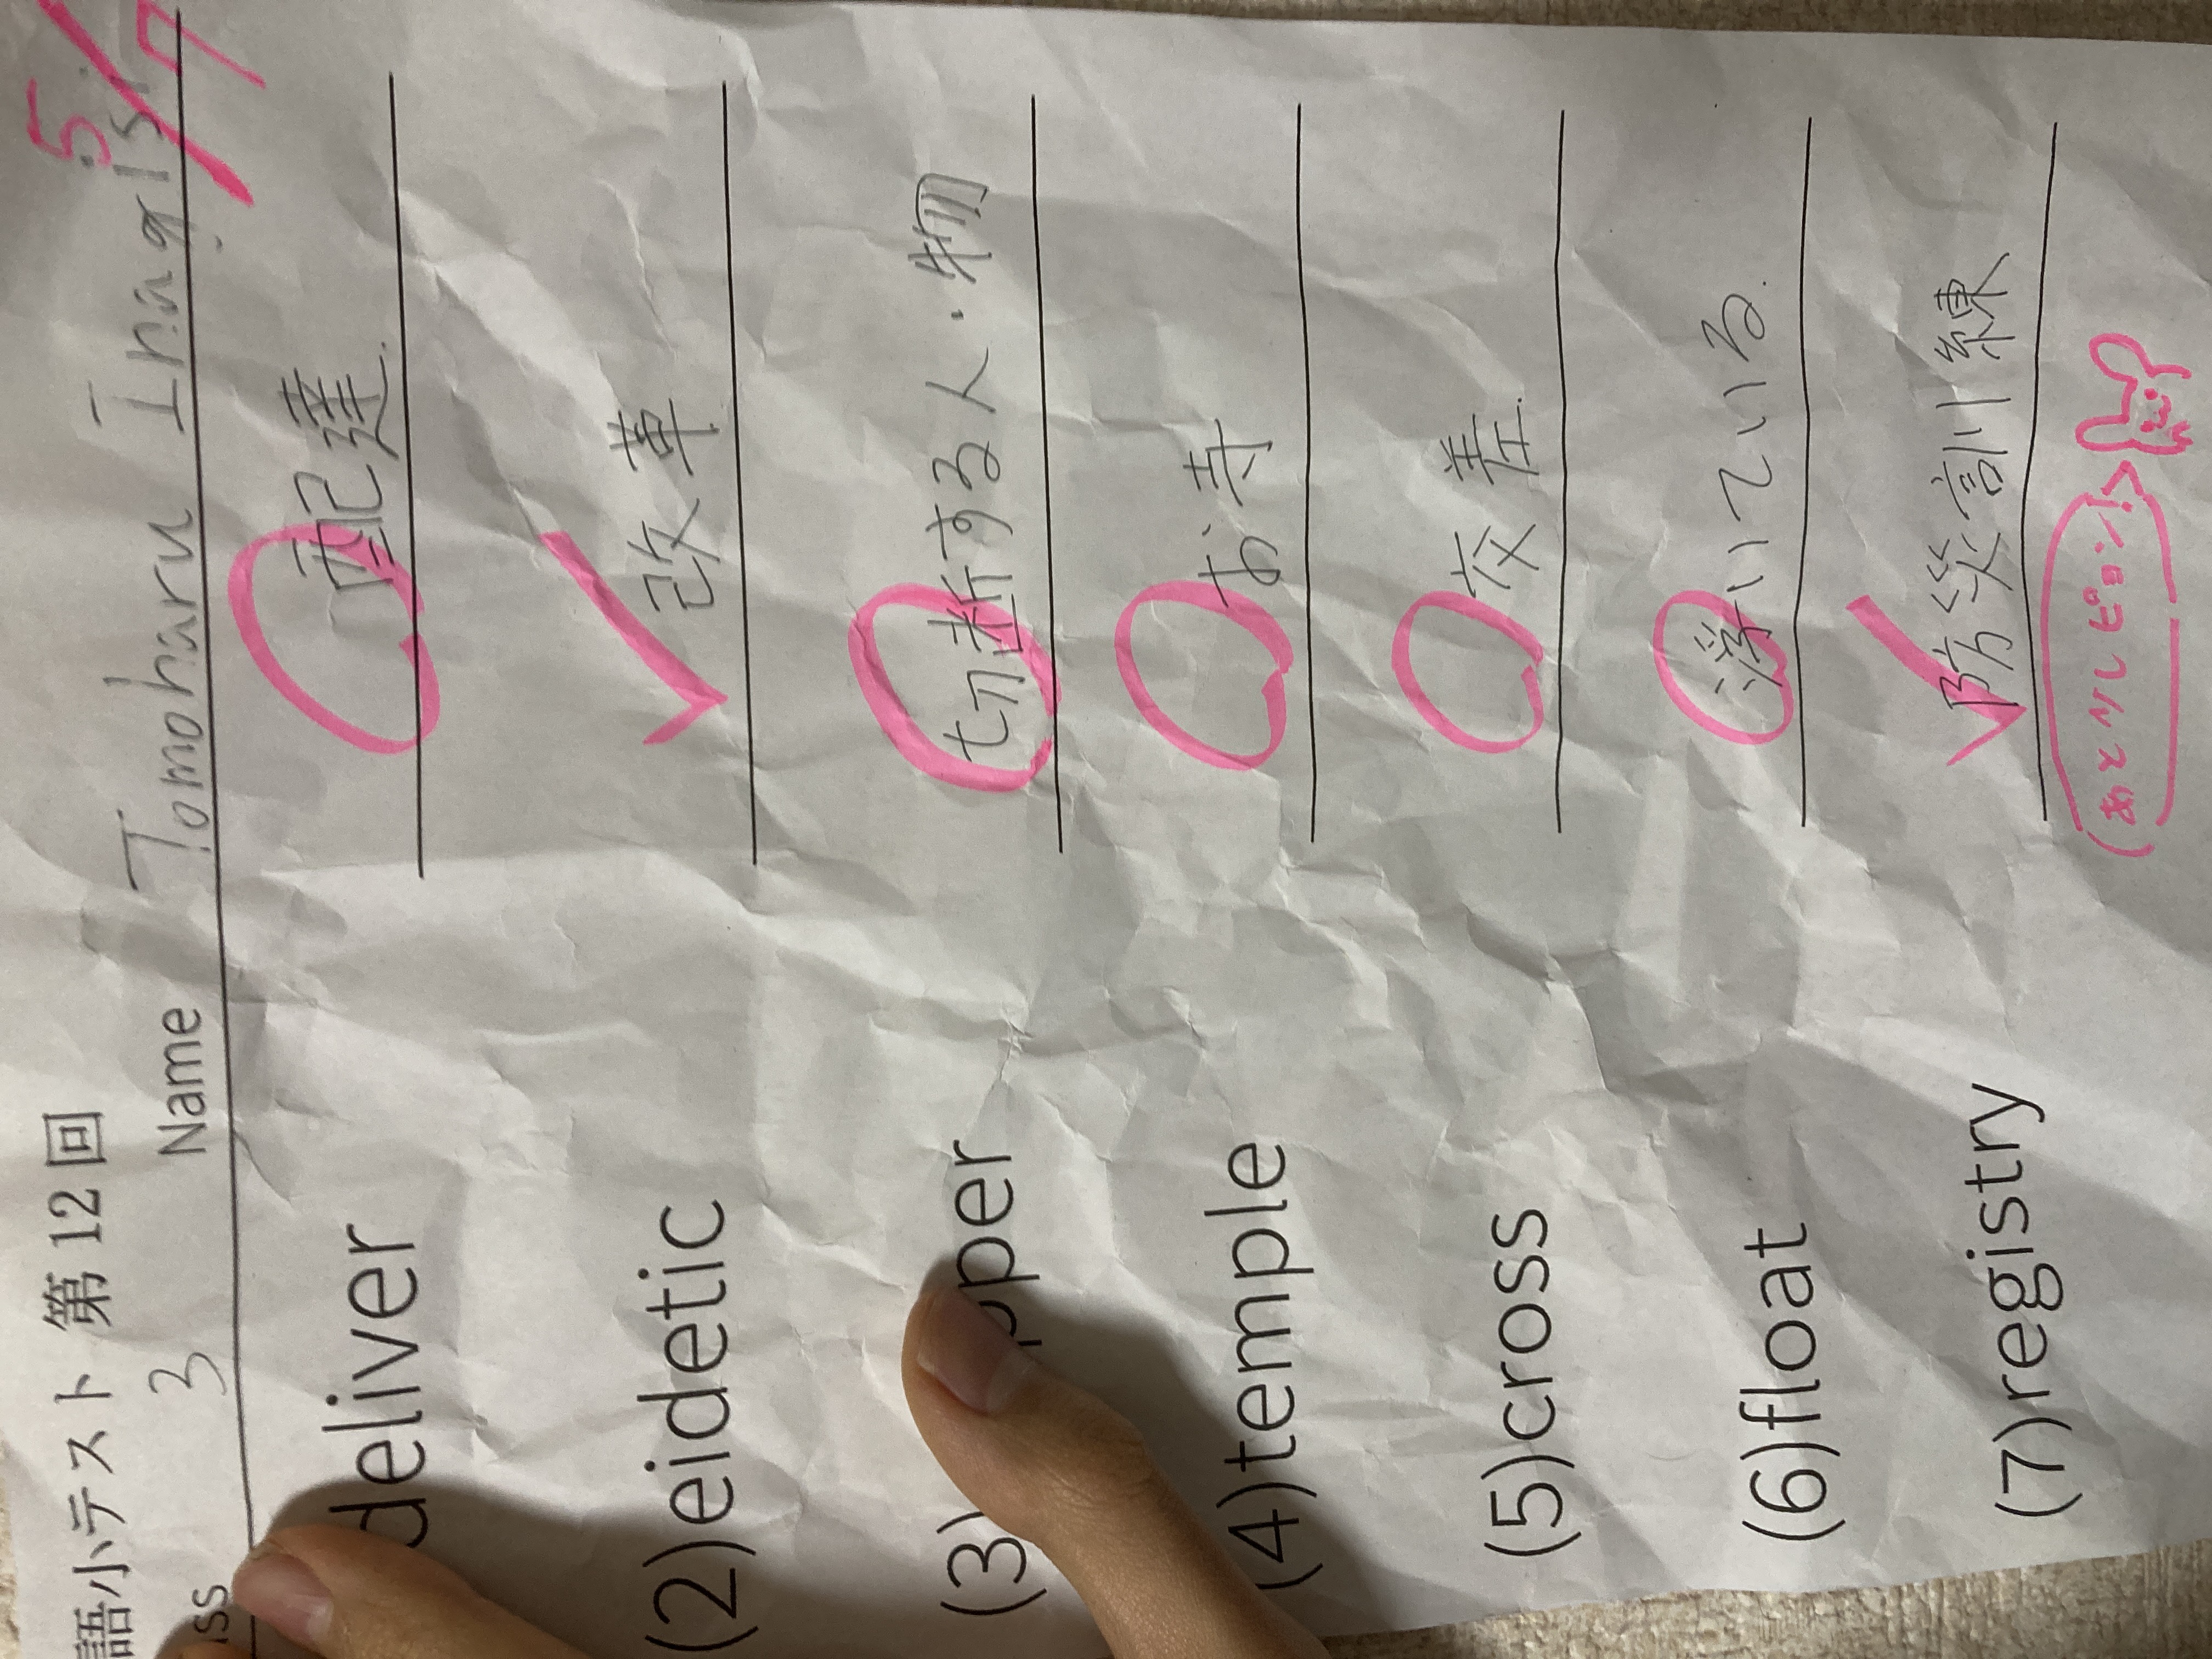 語小テスト 第12回
5/7
3 Name Tomoharu Inagisi
deliver 配達
(2)eidetic 改革
(3) 切断する人・物
(4)temple お寺
(5)cross 交差
(6)float 浮いている
(7)registry 防災訓練
あと少しピョン!